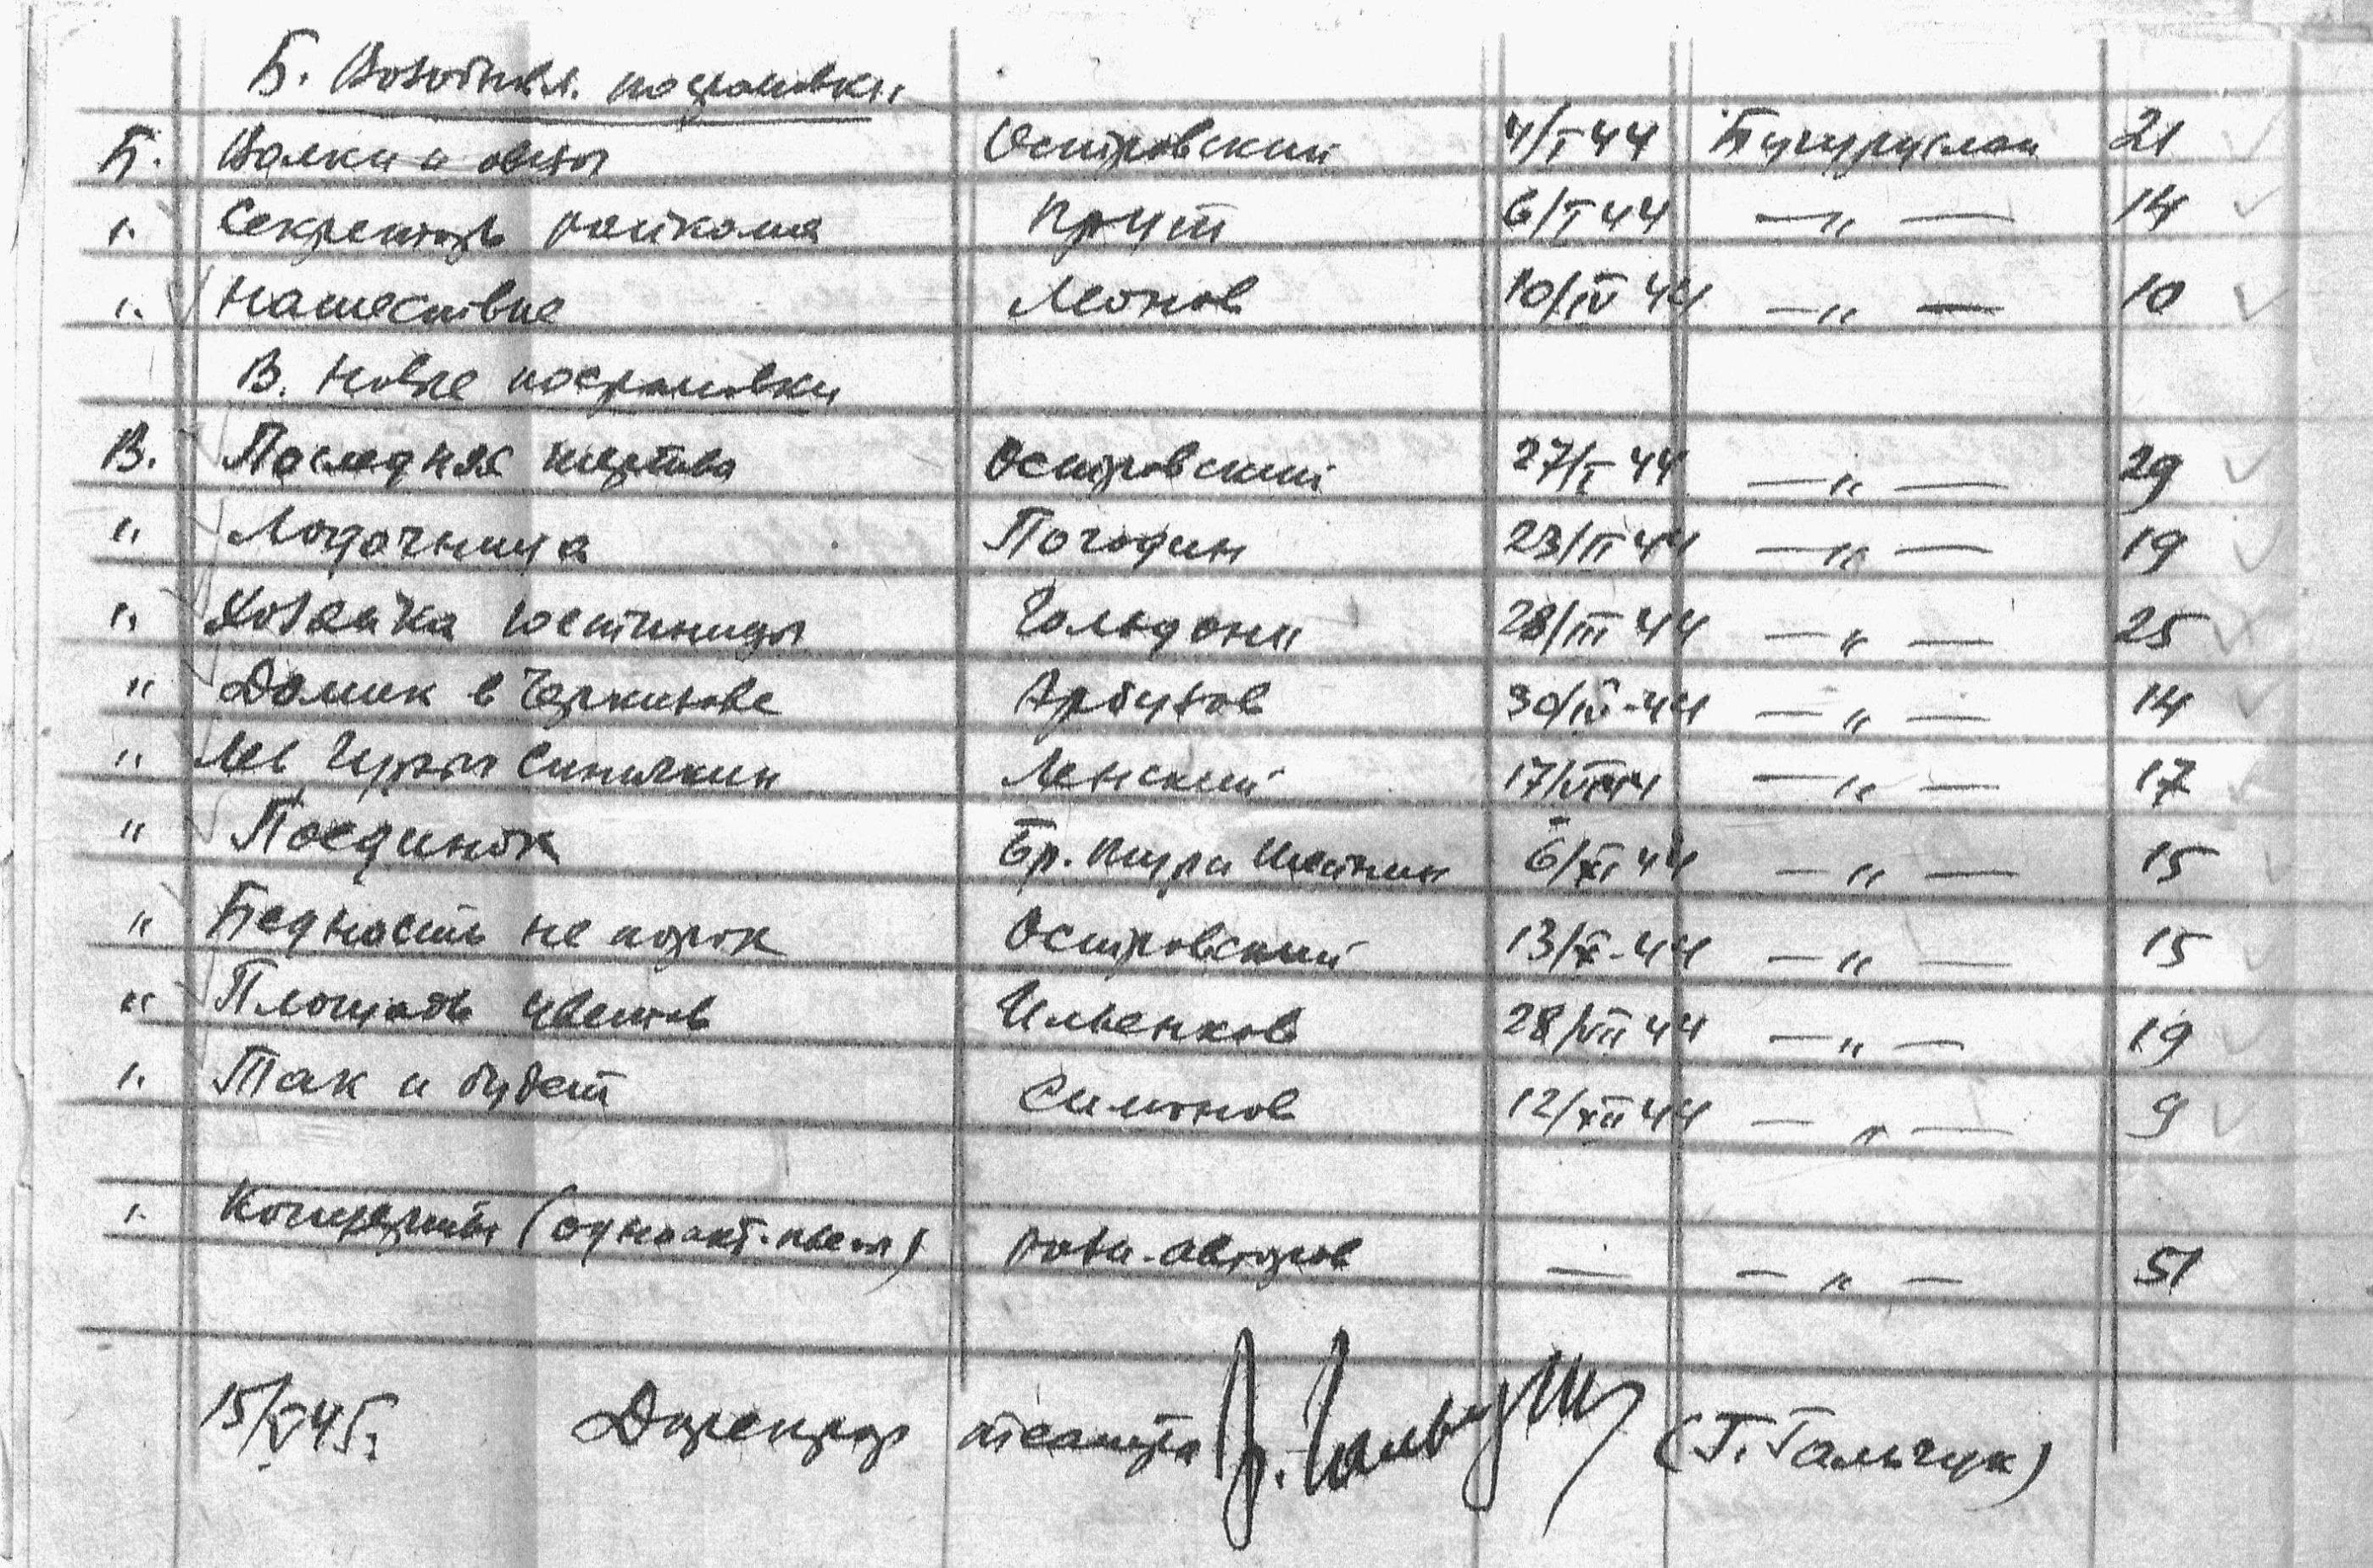 Б. Возобновл. постановки
Б. Волки и овцы Островский 4/I 44 Бугуруслан 21
". Секретарь райкома Крут 6/I 44 —"— 14
". Нашествие Леонов 10/IV 44 —"— 10
В. Новые постановки
В. Последняя жертва Островский 27/I 44 —"— 29
" Лодочница Погодин 23/II 44 —"— 19
" Хозяйка гостиницы Гольдони 28/III 44 —"— 25
" Домик в Черкизове Арбузов 30/IV-44 —"— 14
" Лев Гурыч Синичкин Ленский 17/ 44 —"— 17
" Поединок Бр. Тур и Шейнин 6/XI 44 —"— 15
" Бедность не порок Островский 13/X-44 —"— 15
" Площадь цветов Ильенков 28/VII 44 —"— 19
" Так и будет Симонов 12/XII 44 —"— 9
" Концерты (одноакт. пьесы) разн. авторов — —"— 51
15/V 45г. Директор театра (Г. Гальчук)